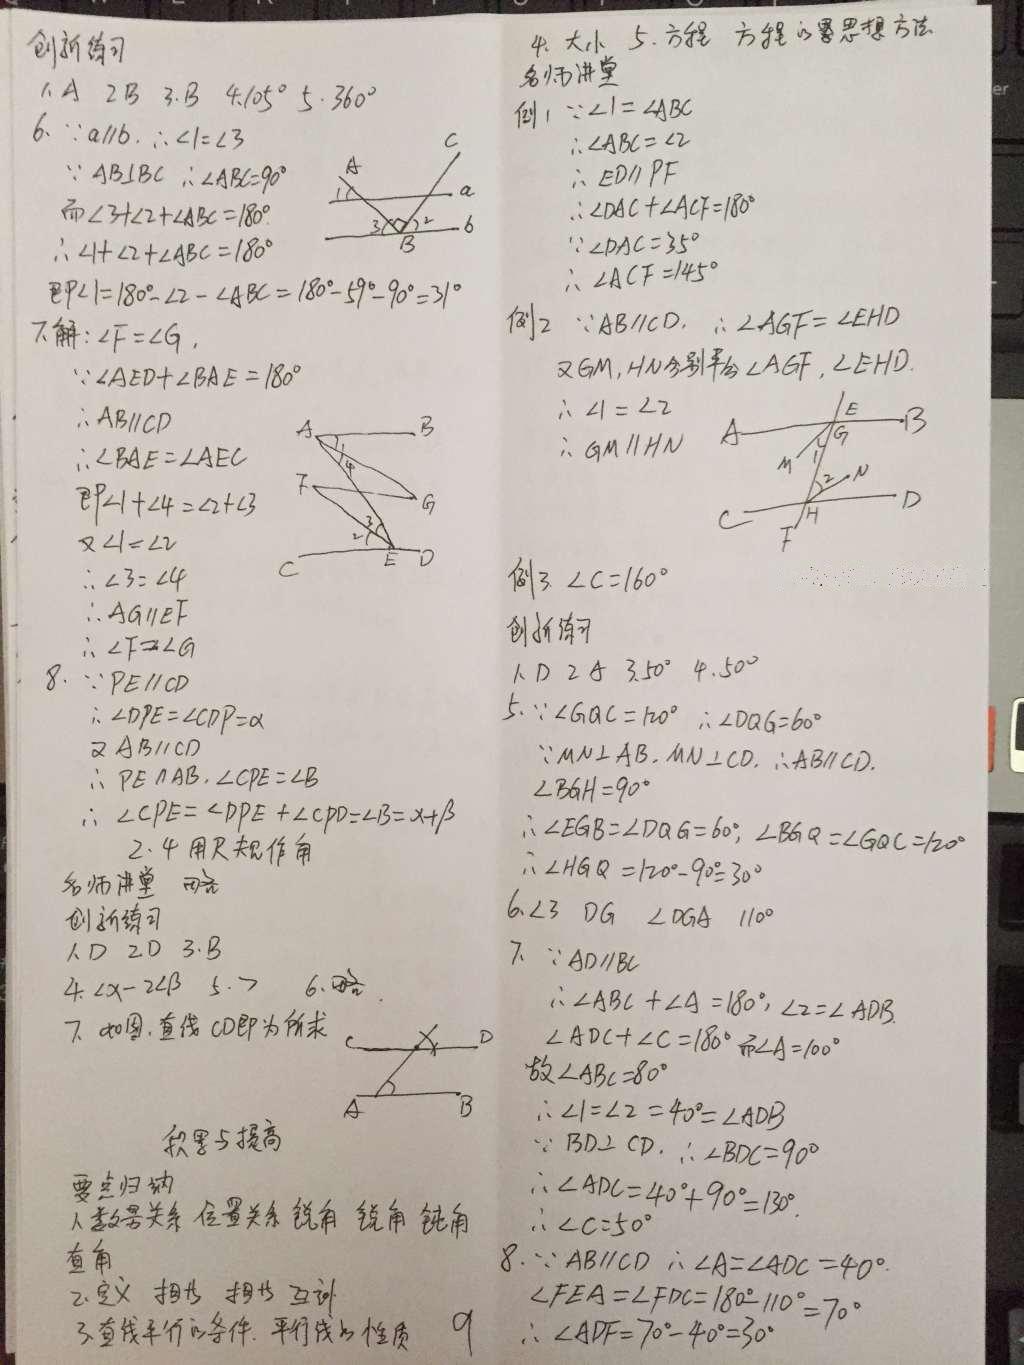 创新练习
1. A 2. B 3. B 4. 105° 5. 360°
6. ∵a∥b. ∴∠1=∠3
∵AB⊥BC ∴∠ABC=90°
而∠3+∠2+∠ABC=180°.
∴∠1+∠2+∠ABC=180°
即∠1=180°-∠2-∠ABC=180°-59°-90°=31°
A C
1 a
3 2 b
B
7. 解:∠F=∠G,
∵∠AED+∠BAE=180°
∴AB∥CD
∴∠BAE=∠AEC
即∠1+∠4=∠2+∠3
又∠1=∠2
∴∠3=∠4
∴AG∥EF
∴∠F=∠G
A B
1
4
F G
3
2
C E D
8. ∵PE∥CD
∴∠DPE=∠CDP=α
又AB∥CD
∴PE∥AB. ∠CPE=∠B
∴∠CPE=∠DPE+∠CPD=∠B=α+β
2.4 用尺规作角
名师讲堂 略
创新练习
1. D 2. D 3. B
4. ∠α-2∠β 5. > 6. 略.
7. 如图.直线CD即为所求
C D
A B
积累与提高
要点归纳
1. 数量关系 位置关系 锐角 锐角 钝角
直角
2. 定义 相等 相等 互补
3. 直线平行的条件. 平行线的性质
9
4. 大小 5. 方程 方程的思想方法
名师讲堂
例1 ∵∠1=∠ABC
∴∠ABC=∠2
∴ED∥PF
∴∠DAC+∠ACF=180°
∵∠DAC=35°
∴∠ACF=145°
例2 ∵AB∥CD. ∴∠AGF=∠EHD
又GM,HN分别平分∠AGF,∠EHD.
∴∠1=∠2
∴GM∥HN
E
A G B
M 1
2 N
C H D
F
例3 ∠C=160°
创新练习
1. D 2. A 3. 50° 4. 50°
5. ∵∠GQC=120° ∴∠DQG=60°
∵MN⊥AB. MN⊥CD. ∴AB∥CD.
∠BGH=90°
∴∠EGB=∠DQG=60°, ∠BGQ=∠GQC=120°
∴∠HGQ=120°-90°=30°
6. ∠3 DG ∠DGA 110°
7. ∵AD∥BC
∴∠ABC+∠A=180°, ∠2=∠ADB.
∠ADC+∠C=180° 而∠A=100°
故∠ABC=80°
∴∠1=∠2=40°=∠ADB
∵BD⊥CD. ∴∠BDC=90°
∴∠ADC=40°+90°=130°.
∴∠C=50°
8. ∵AB∥CD ∴∠A=∠ADC=40°.
∠FEA=∠FDC=180°-110°=70°
∴∠ADF=70°-40°=30°